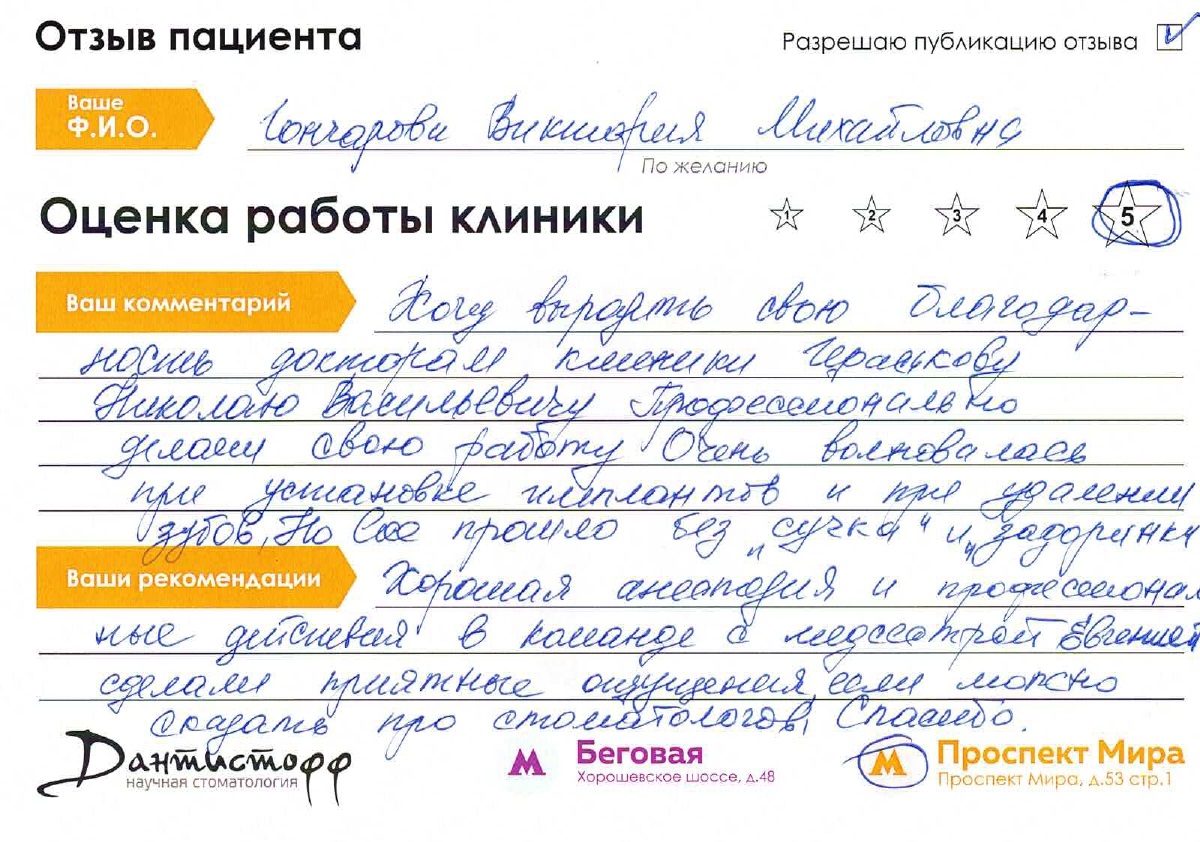 Отзыв пациента
Разрешаю публикацию отзыва
Ваше
Ф.И.О.
Гончарова Виктория Михайловна
По желанию
Оценка работы клиники
1 2 3 4 5
Ваш комментарий
Хочу выразить свою благодар-
ность докторам клиники Гераськову
Николаю Васильевичу Профессионально
делают свою работу Очень волновалась
при установке имплантов и при удалении
зубов, Но Все прошло без „сучка“ и „задоринки
Ваши рекомендации
Хорошая анестезия и профессионал
ные действия в команде с медсестрой Евгенией
сделали приятные ощущения, если можно
сказать про стоматологов, Спасибо.
Дантистофф
научная стоматология
М Беговая
Хорошевское шоссе, д.48
М Проспект Мира
Проспект Мира, д.53 стр.1